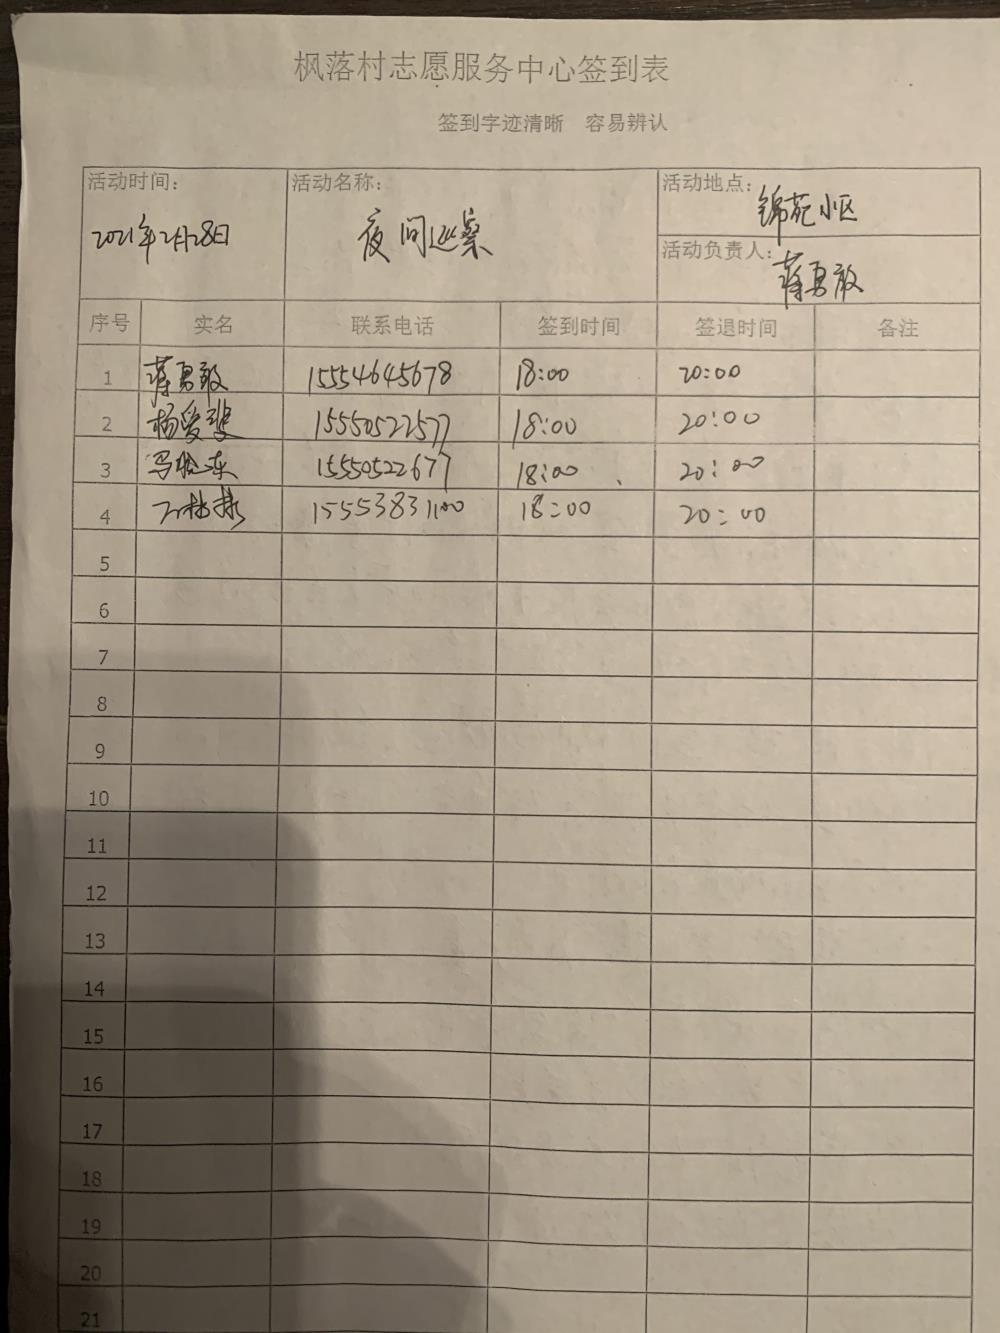 枫落村志愿服务中心签到表
签到字迹清晰 容易辨认
活动时间: 活动名称: 活动地点: 锦苑小区
2021年2月28日 夜间巡察
活动负责人: 蒋勇敢
序号 实名 联系电话 签到时间 签退时间 备注
1 蒋勇敢 15554645678 18:00 20:00
2 杨爱 15550522577 18:00 20:00
3 15550522677 18:00 20:00
4 15553831100 18:00 20:00
5
6
7
8
9
10
11
12
13
14
15
16
17
18
19
20
21